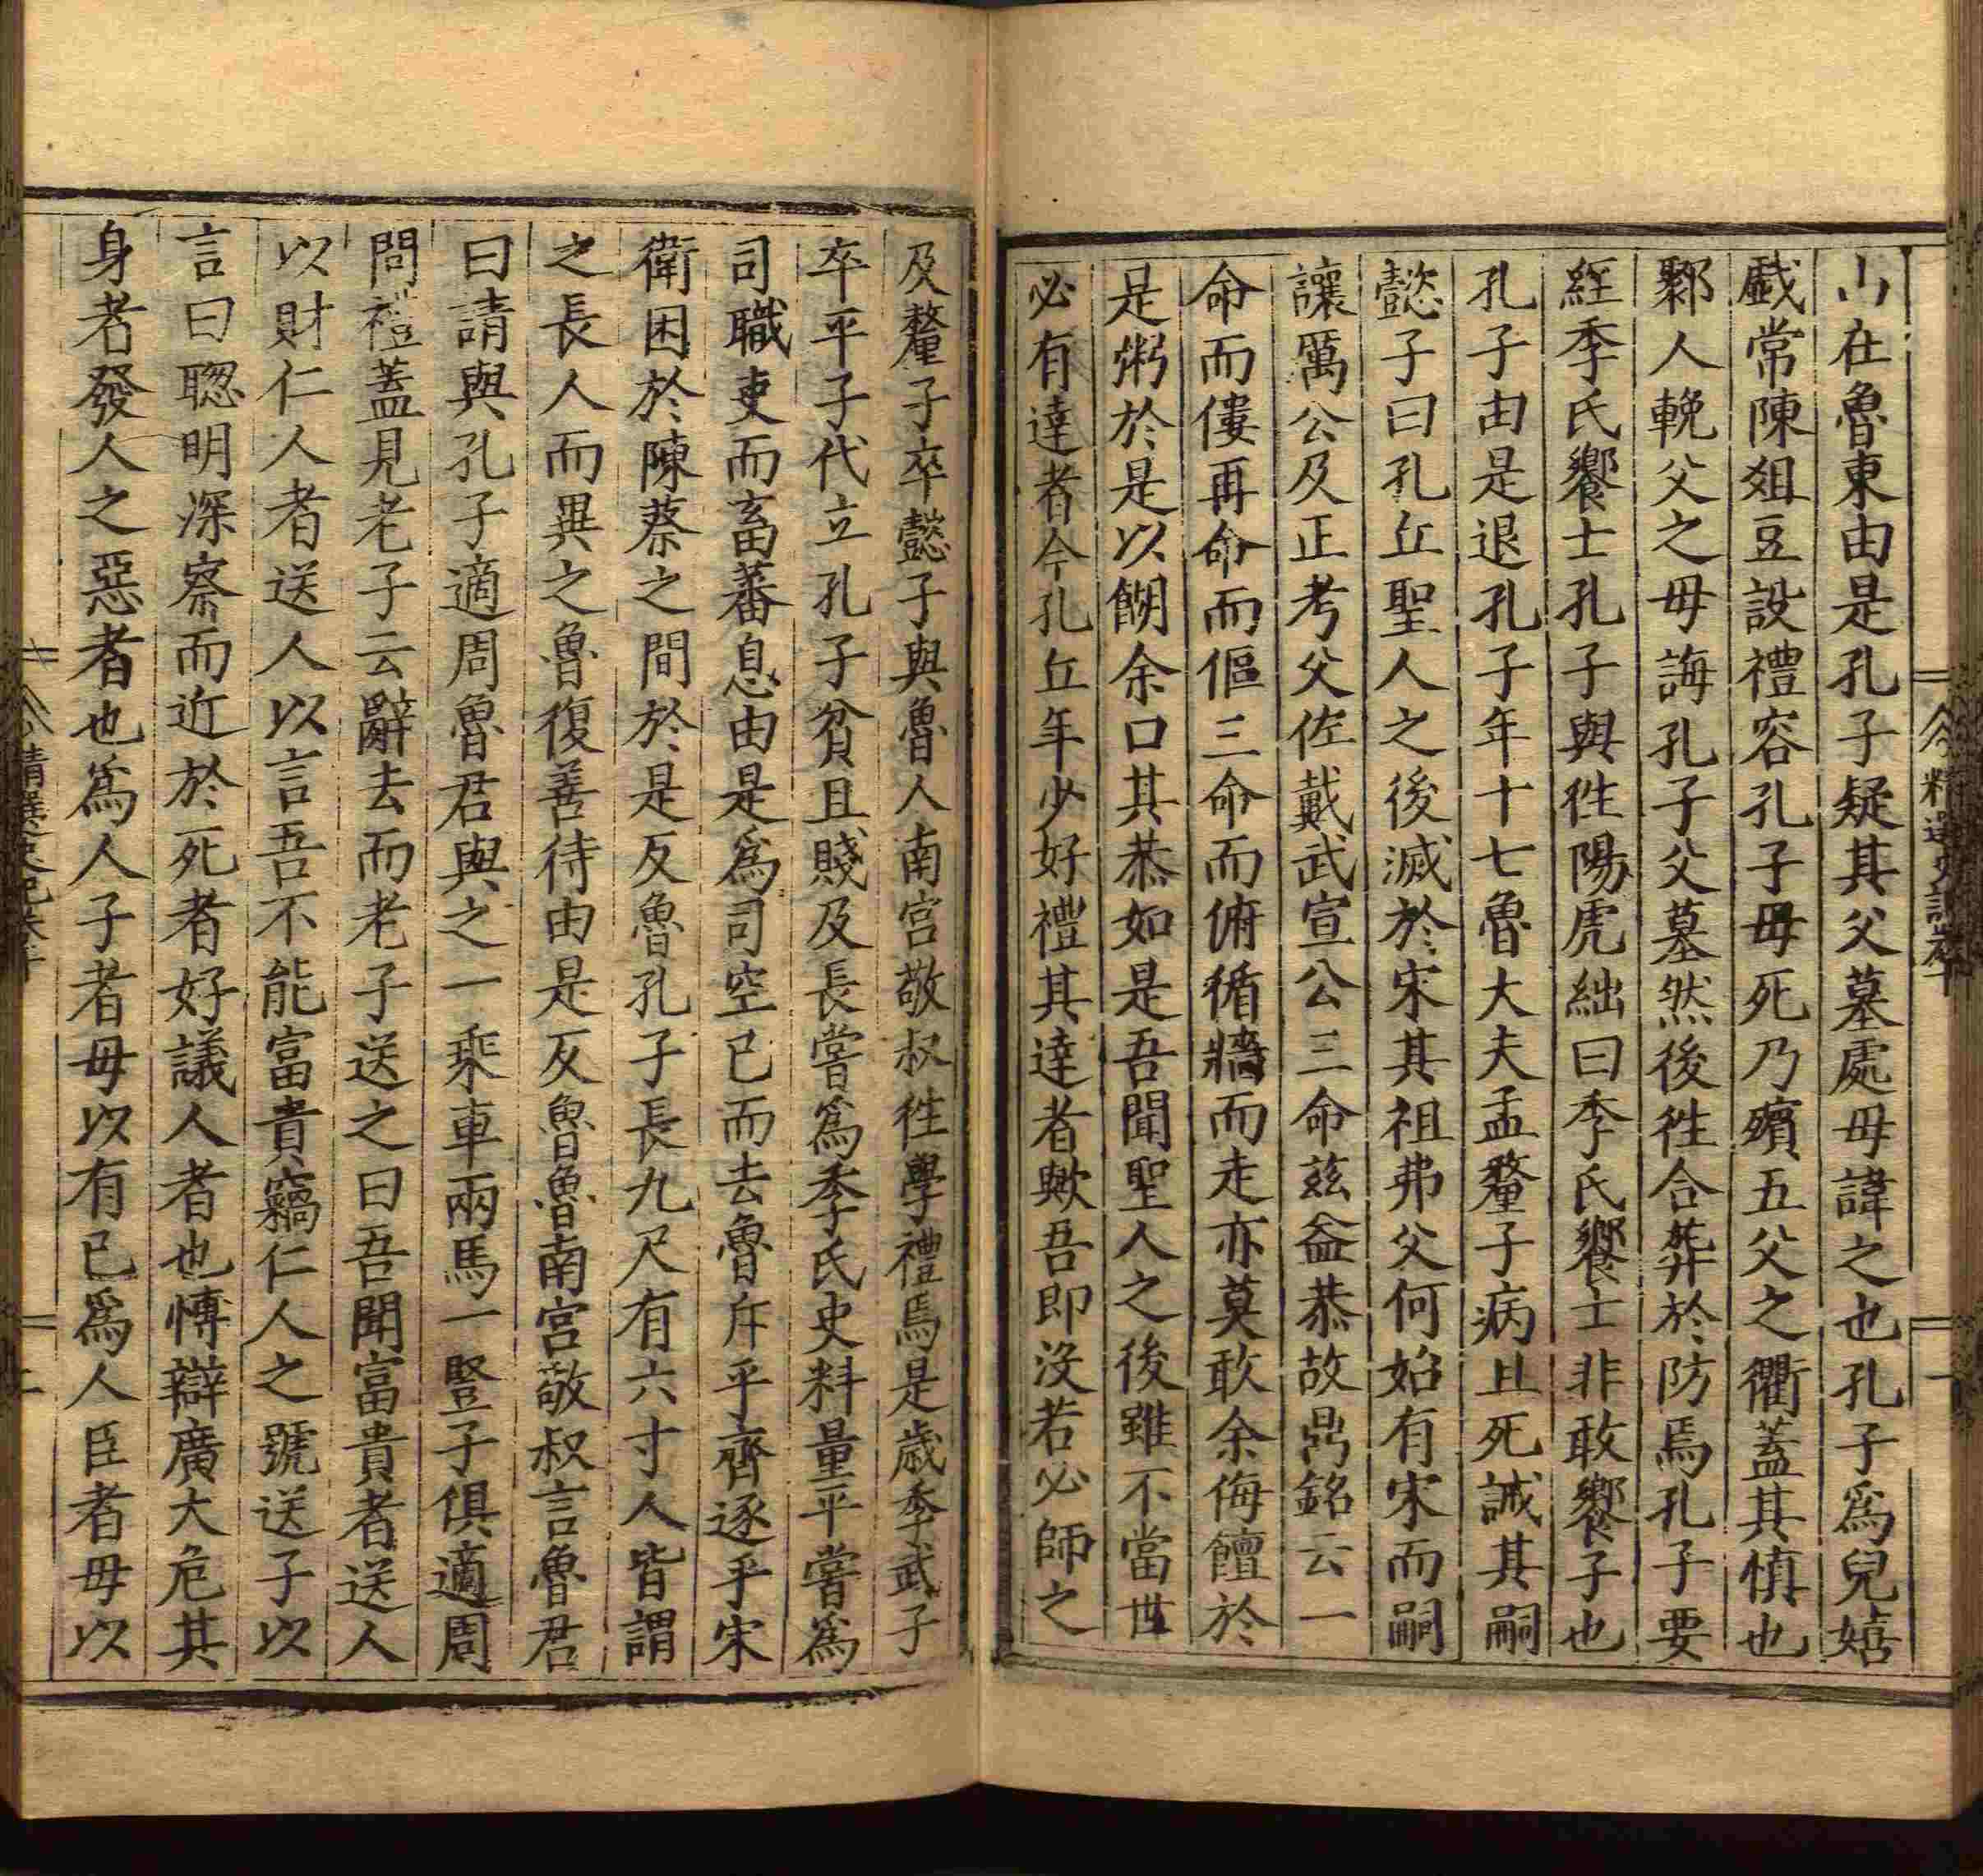 山在魯東由是孔子疑其父墓處母諱之也孔子爲兒嬉
戱常陳爼豆設禮容孔子毋死乃殯五父之衢蓋其慎也
鄹人輓父之毋誨孔子父墓然後徃合葬於防焉孔子要
絰季氏饗士孔子與徃陽虎絀曰季氏饗士非敢饗子也
孔子由是退孔子年十七魯大夫孟釐子病且死誡其嗣
懿子曰孔丘聖人之後滅於宋其祖弗父何始有宋而嗣
讓厲公及正考父佐戴武宣公三命兹益恭故鼎銘云一
命而僂再命而傴三命而俯循牆而走亦莫敢余侮饘於
是粥於是以餬余口其恭如是吾聞聖人之後雖不當世
必有達者今孔丘年少好禮其達者歟吾即没若必師之
及釐子卒懿子與魯人南宫敬叔徃學禮焉是歲季武子
卒平子代立孔子貧且賤及長嘗爲季氏史料量平嘗爲
司職吏而畜蕃息由是爲司空已而去魯斥乎齊逐乎宋
衛困於陳蔡之間於是反魯孔子長九尺有六寸人皆謂
之長人而異之魯復善待由是反魯魯南宫敬叔言魯君
曰請與孔子適周魯君與之一乘車兩馬一豎子俱適周
問禮蓋見老子云辭去而老子送之曰吾聞富貴者送人
以財仁人者送人以言吾不能富貴竊仁人之號送子以
言曰聦明深察而近於死者好議人者也慱辯廣大危其
身者發人之惡者也爲人子者毋以有已爲人臣者毋以
精選史記卷